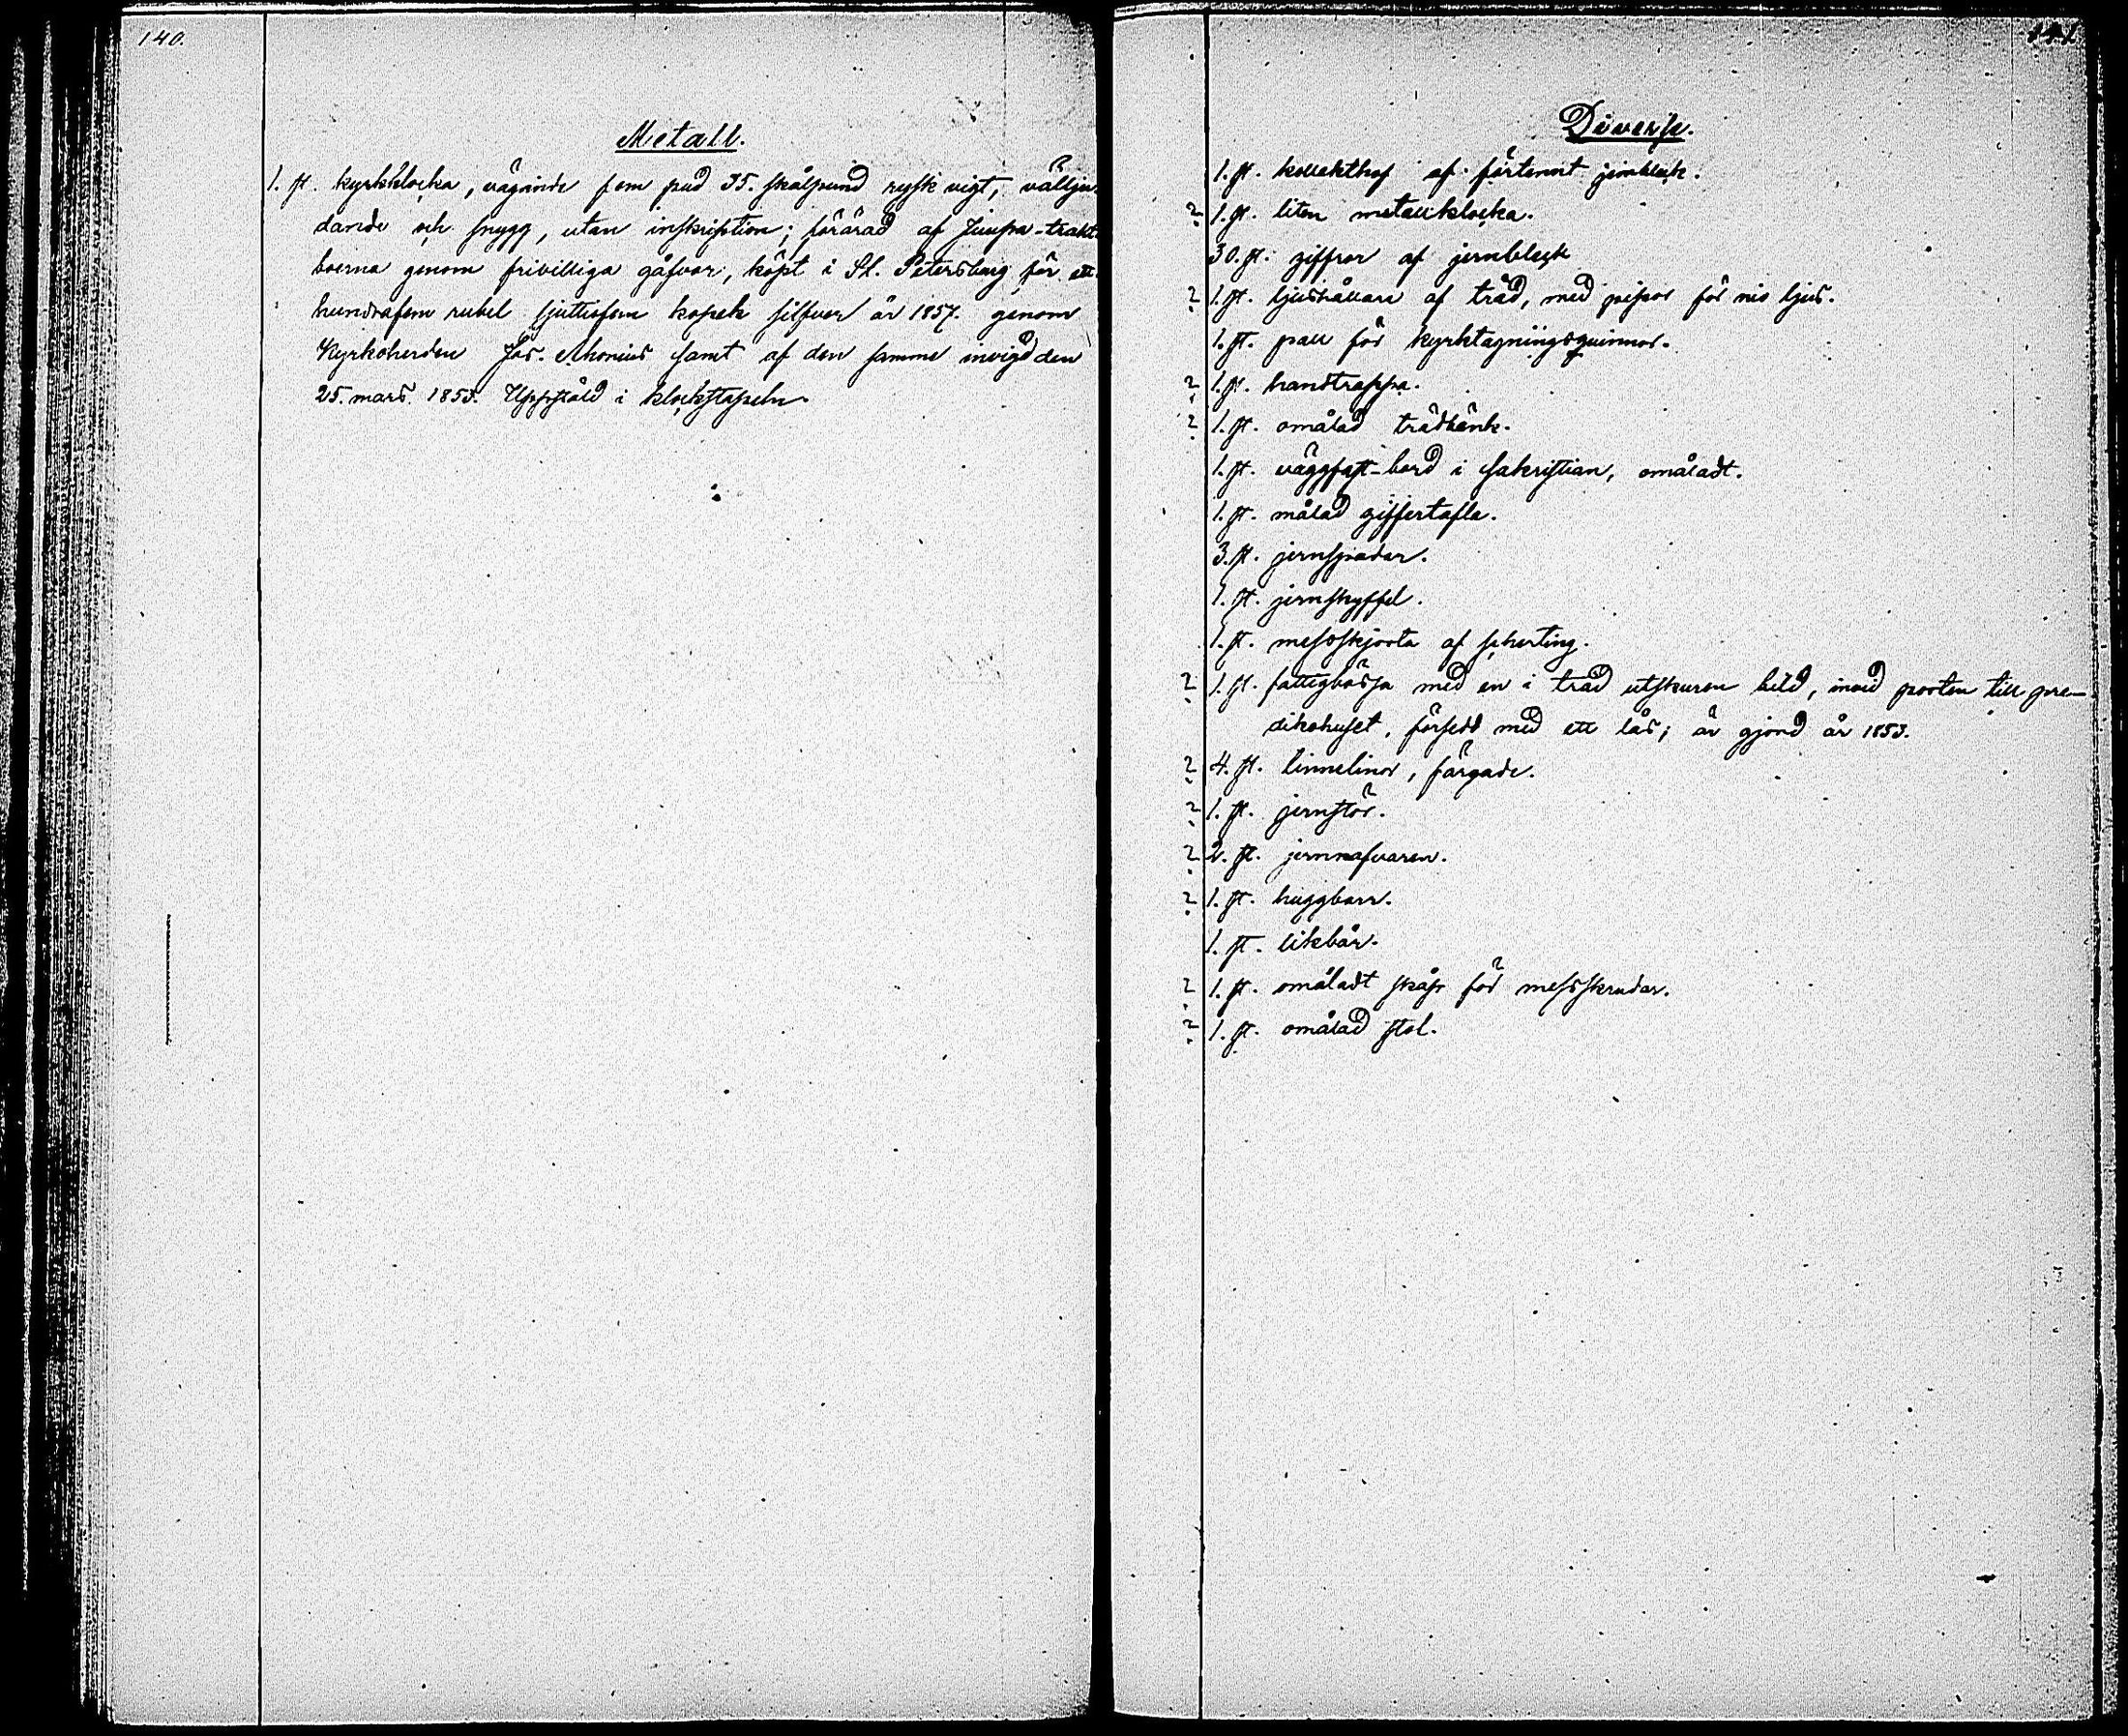 140.
Metall.
1. st. kyrkklocka, vägande fem pud 35. skålpund rysk vigt, välljudande
och snygg, utan inskription; förärad af Juupa-trakt-
boerna genom frivilliga gåfvor, köpt i St. Petersburg för ett
hundrafem rubel sjuttiofem kopek silfver år 1857. genom
Kyrkoherden Jos. Ahonius samt af den samme invigd den
25. mars. 1853. Uppstäld i klockstapeln.
141
Diverse.
1. st. kollekthof af förtennt jernbleck.
? 1. st. liten metallklocka.
30. st. ziffror af jernbleck
? 1. st. ljushållare af träd, med pipor för nio ljus.
1. st. pall för kyrktagningsquinnor.
? 1. st. handtrappa.
? 1. st. omålad trädbänk.
1. st. väggfast-bord i sakristian, omåladt.
1. st. målad ziffertafla.
3. st. jernspadar.
1. st. jernskyffel.
1. st. messskjorta af scherting.
? 1. st. fattigbössa med en i träd utskuren bild, invid porten till pre-
dikohuset, försedd med ett lås; är gjord år 1853.
? 4. st. linnelinor, färgade.
? 1. st. jernstör.
? 2. st. jernnafvaren.
? 1. st. huggbarr.
1. st. likbår.
? 1. st. omåladt skåp för messskrudar.
? 1. st. omålad stol.